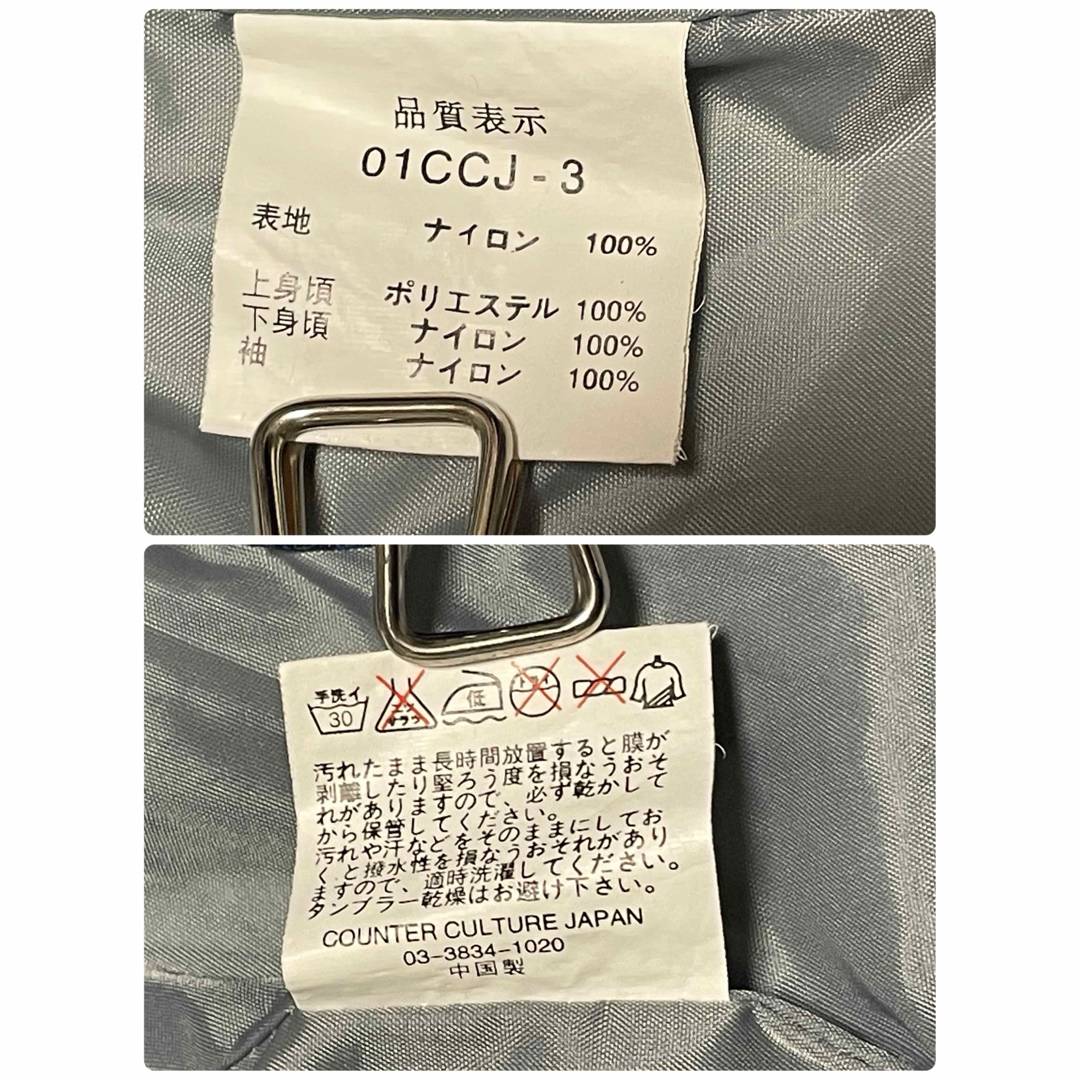 品質表示
01CCJ - 3
表地 ナイロン 100%
上身頃 ポリエステル 100%
下身頃 ナイロン 100%
袖 ナイロン 100%
手洗イ 30 エンソサラシ 低 ドライ
汚れたまま長時間放置すると膜が
剥離したり堅ろう度を損なうおそ
れがありますので、必ず乾かして
から保管してください。
汚れや汗などをそのままにしてお
くと撥水性を損なうおそれがあり
ますので、適時洗濯してください。
タンブラー乾燥はお避け下さい。
COUNTER CULTURE JAPAN
03-3834-1020
中国製